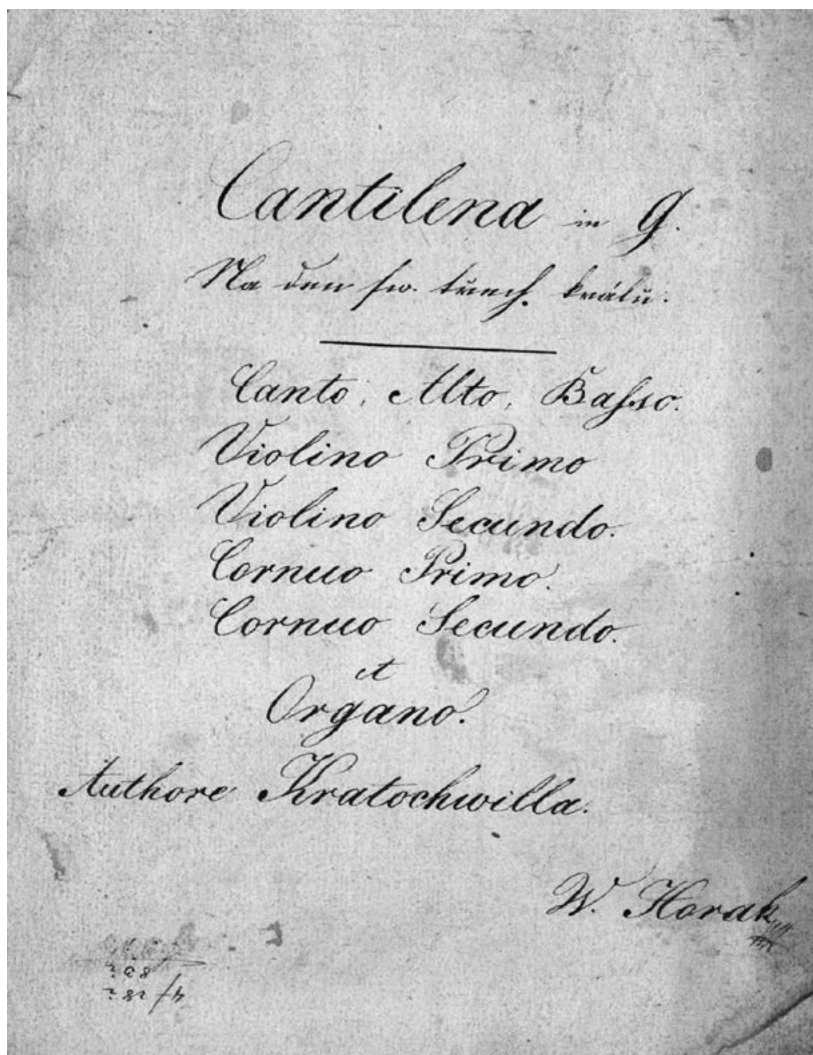 Cantilena in G.
Na den sw. třech králů.
Canto, Alto, Basso.
Violino Primo
Violino Secundo.
Cornuo Primo.
Cornuo Secundo.
et
Organo.
Authore Kratochwilla.
W. Horak